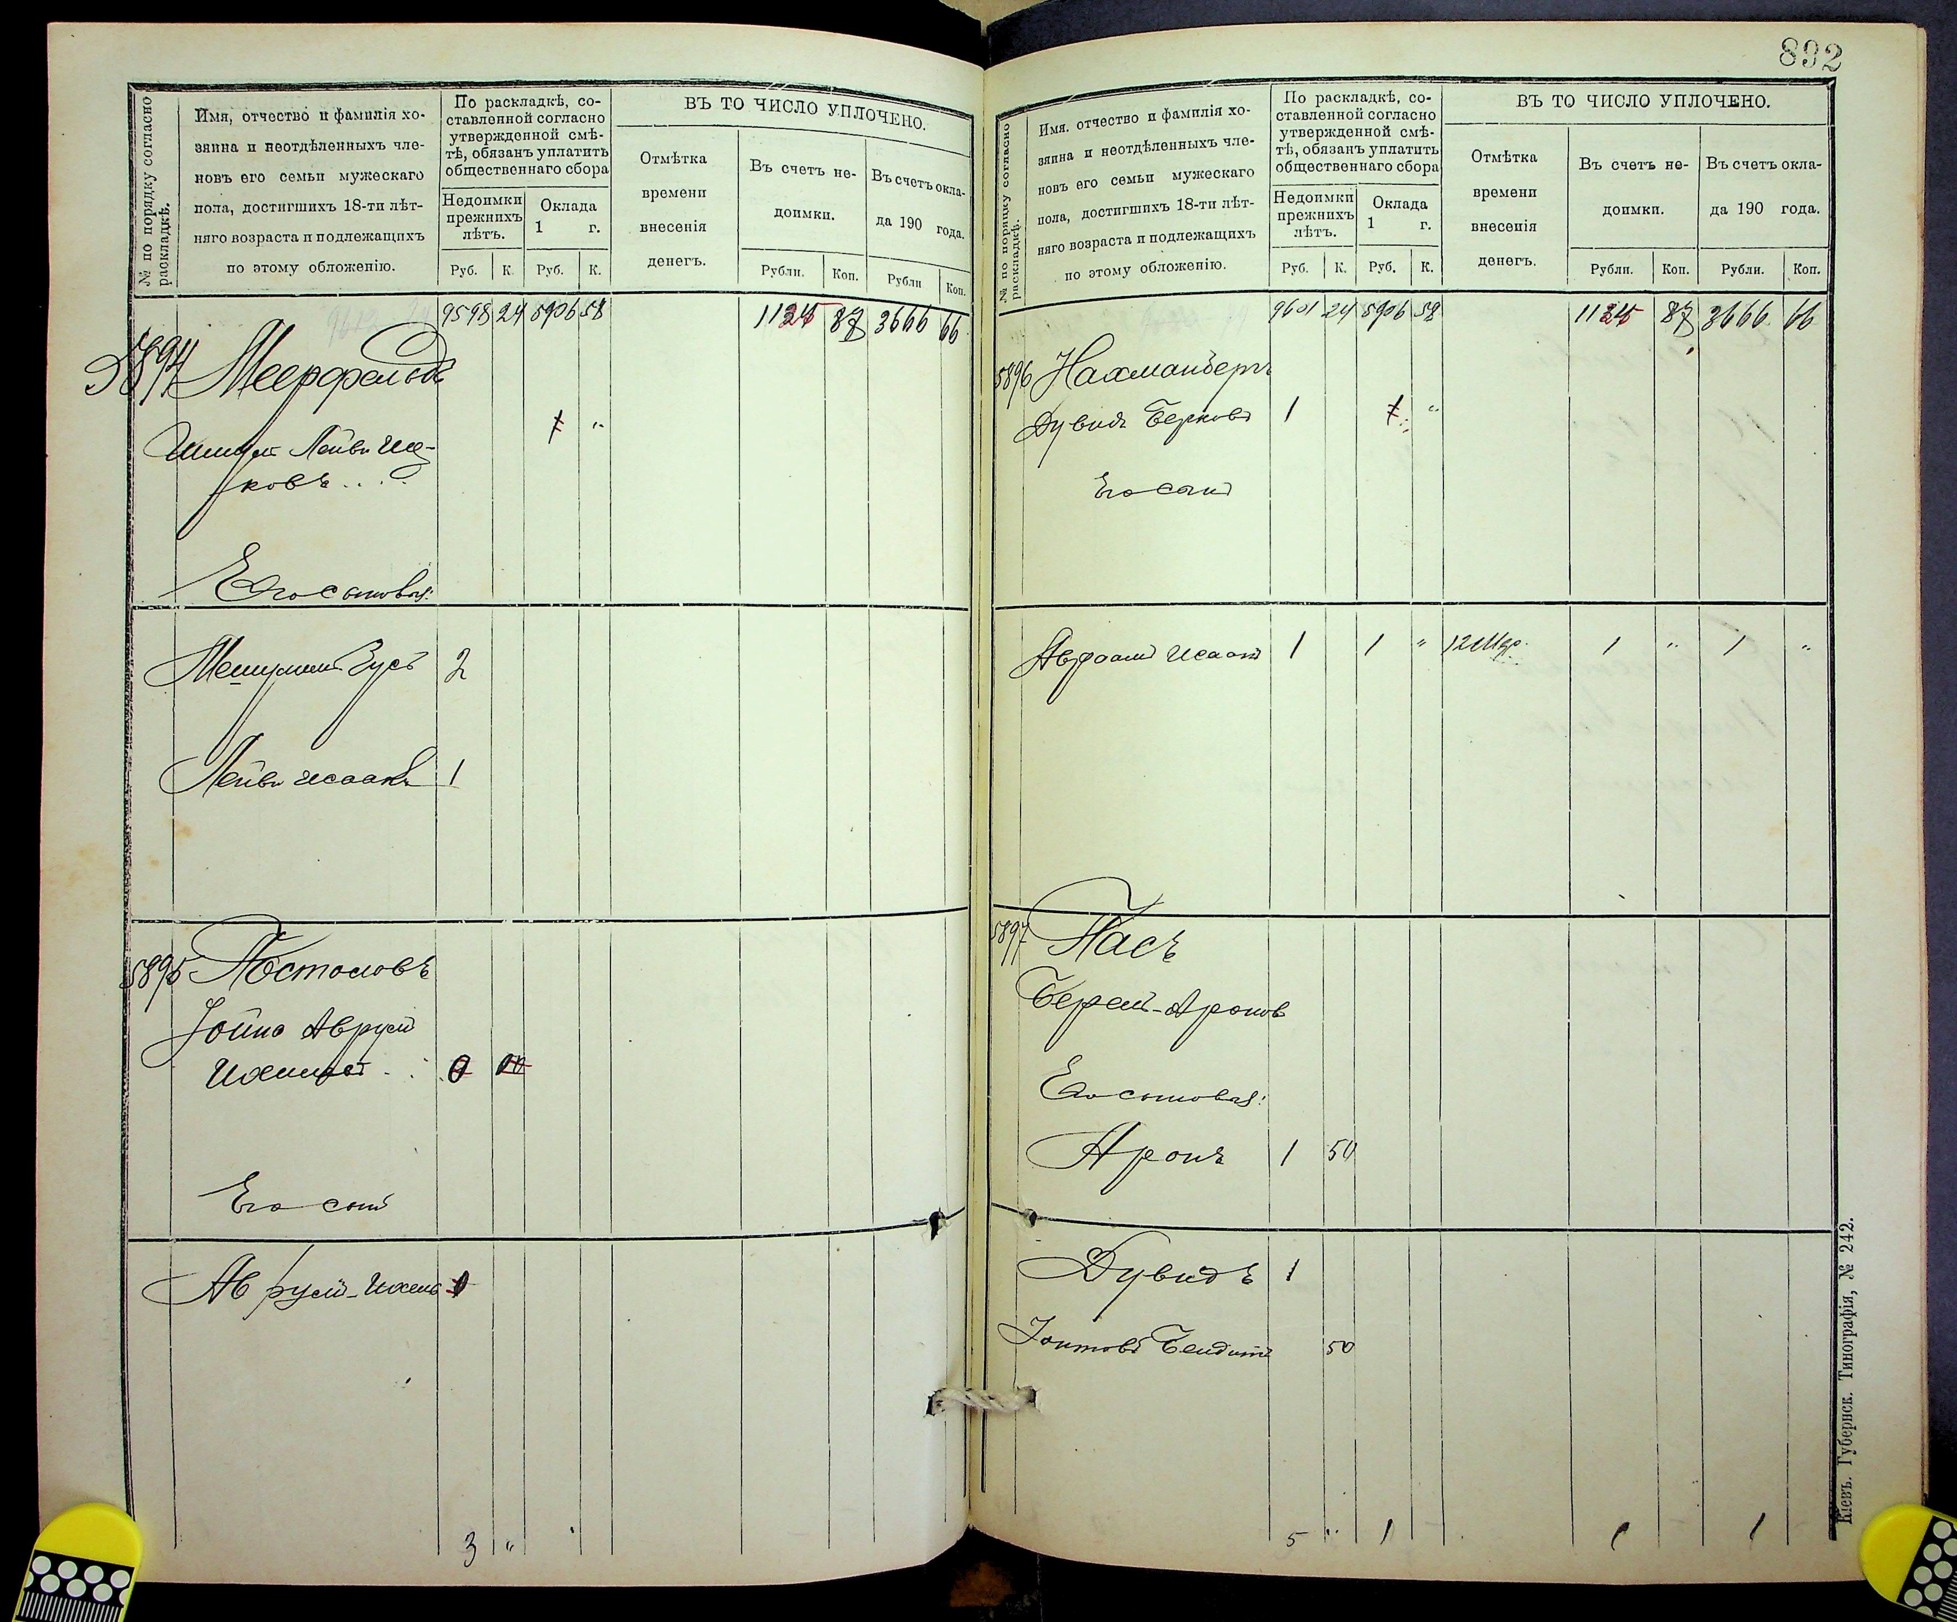 892
№ по порядку согласно раскладкѣ.
Имя, отчество и фамилія хозяина и неотдѣленныхъ членовъ его семьи мужескаго пола, достигшихъ 18-ти лѣтняго возраста и подлежащихъ по этому обложенію.
По раскладкѣ, составленной согласно утвержденной смѣтѣ, обязанъ уплатить общественнаго сбора
Недоимки прежнихъ лѣтъ.
Оклада 1 г.
ВЪ ТО ЧИСЛО УПЛОЧЕНО.
Отмѣтка времени внесенія денегъ.
Въ счетъ недоимки.
Въ счетъ оклада 190 года.
Руб. К. Руб. К. Рубли. Коп. Рубли Коп.
9598 24 5906 58 87 3666 66
5894 Меерфельдъ
Лейви Иц-
ковъ . . .
Его сыновья:
Мешулим Зусь 2
Лейви Исаакъ 1
5895 Апостоловъ
Іойна Аврум
Его сынъ
Аврум-Ихель
3 "
№ по порядку согласно раскладкѣ.
Имя. отчество и фамилія хозяина и неотдѣленныхъ членовъ его семьи мужескаго пола, достигшихъ 18-ти лѣтняго возраста и подлежащихъ по этому обложенію.
По раскладкѣ, составленной согласно утвержденной смѣтѣ, обязанъ уплатить общественнаго сбора
Недоимки прежнихъ лѣтъ.
Оклада 1 г.
ВЪ ТО ЧИСЛО УПЛОЧЕНО.
Отмѣтка времени внесенія денегъ.
Въ счетъ недоимки.
Въ счетъ оклада 190 года.
Руб. К. Руб. К. Рубли. Коп. Рубли. Коп.
9601 24 5906 58 87 3666 66
5896 Нахманберг
Дувидъ Берковъ 1 "
Его сынъ
Авраам Исаакъ 1 1 " 12 1 " 1 "
5897 Пасъ
Берель-Аронов
Его сыновья:
Аронъ 1 50
Дувидъ 1
Іойнтовъ Бендитъ 50
5 " 1 1 1
Кіевъ. Губернск. Типографія, № 242.